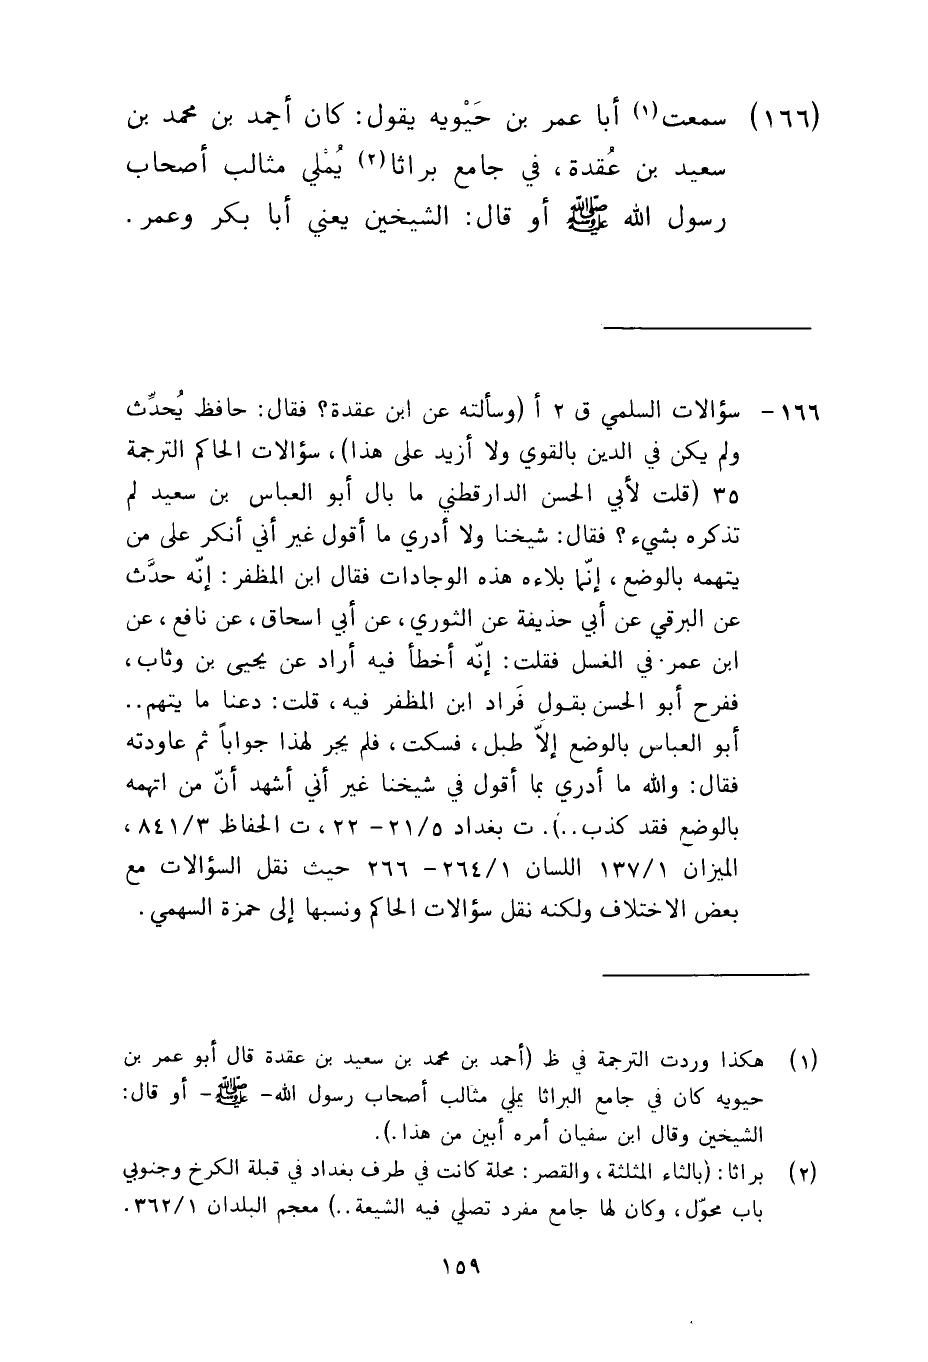 (١٦٦) سمعت(١) أبا عمر بن حَيْويه يقول: كان أحمد بن محمد بن
سعيد بن عُقدة، في جامع براثا(٢) يُمْلي مثالب أصحاب
رسول الله ﷺ أو قال: الشيخين يعني أبا بكر وعمر.
١٦٦- سؤالات السلمي ق ٢ أ (وسألته عن ابن عقدة؟ فقال: حافظ يُحدِّث
ولم يكن في الدين بالقوي ولا أزيد على هذا)، سؤالات الحاكم الترجمة
٣٥ (قلت لأبي الحسن الدارقطني ما بال أبو العباس بن سعيد لم
تذكره بشيء؟ فقال: شيخنا ولا أدري ما أقول غير أني أنكر على من
يتهمه بالوضع، إنّما بلاءه هذه الوجادات فقال ابن المظفر: إنّه حدَّث
عن البرقي عن أبي حذيفة عن الثوري، عن أبي اسحاق، عن نافع، عن
ابن عمر في الغسل فقلت: إنّه أخطأ فيه أراد عن يحيى بن وثاب،
ففرح أبو الحسن بقول فَراد ابن المظفر فيه، قلت: دعنا ما يتهم..
أبو العباس بالوضع إلاّ طبل، فسكت، فلم يجر لهذا جواباً ثم عاودته
فقال: والله ما أدري بما أقول في شيخنا غير أني أشهد أنّ من اتهمه
بالوضع فقد كذب..). ت بغداد ٢١/٥- ٢٢، ت الحفاظ ٨٤١/٣،
الميزان ١٣٧/١ اللسان ٢٦٤/١- ٢٦٦ حيث نقل السؤالات مع
بعض الاختلاف ولكنه نقل سؤالات الحاكم ونسبها إلى حمزة السهمي.
(١) هكذا وردت الترجمة في ظ (أحمد بن محمد بن سعيد بن عقدة قال أبو عمر بن
حيويه كان في جامع البراثا يملي مثالب أصحاب رسول الله- ﷺ- أو قال:
الشيخين وقال ابن سفيان أمره أبين من هذا.).
(٢) براثا: (بالثاء المثلثة، والقصر: محلة كانت في طرف بغداد في قبلة الكرخ وجنوبي
باب محوّل، وكان لها جامع مفرد تصلي فيه الشيعة..) معجم البلدان ٣٦٢/١.
١٥٩